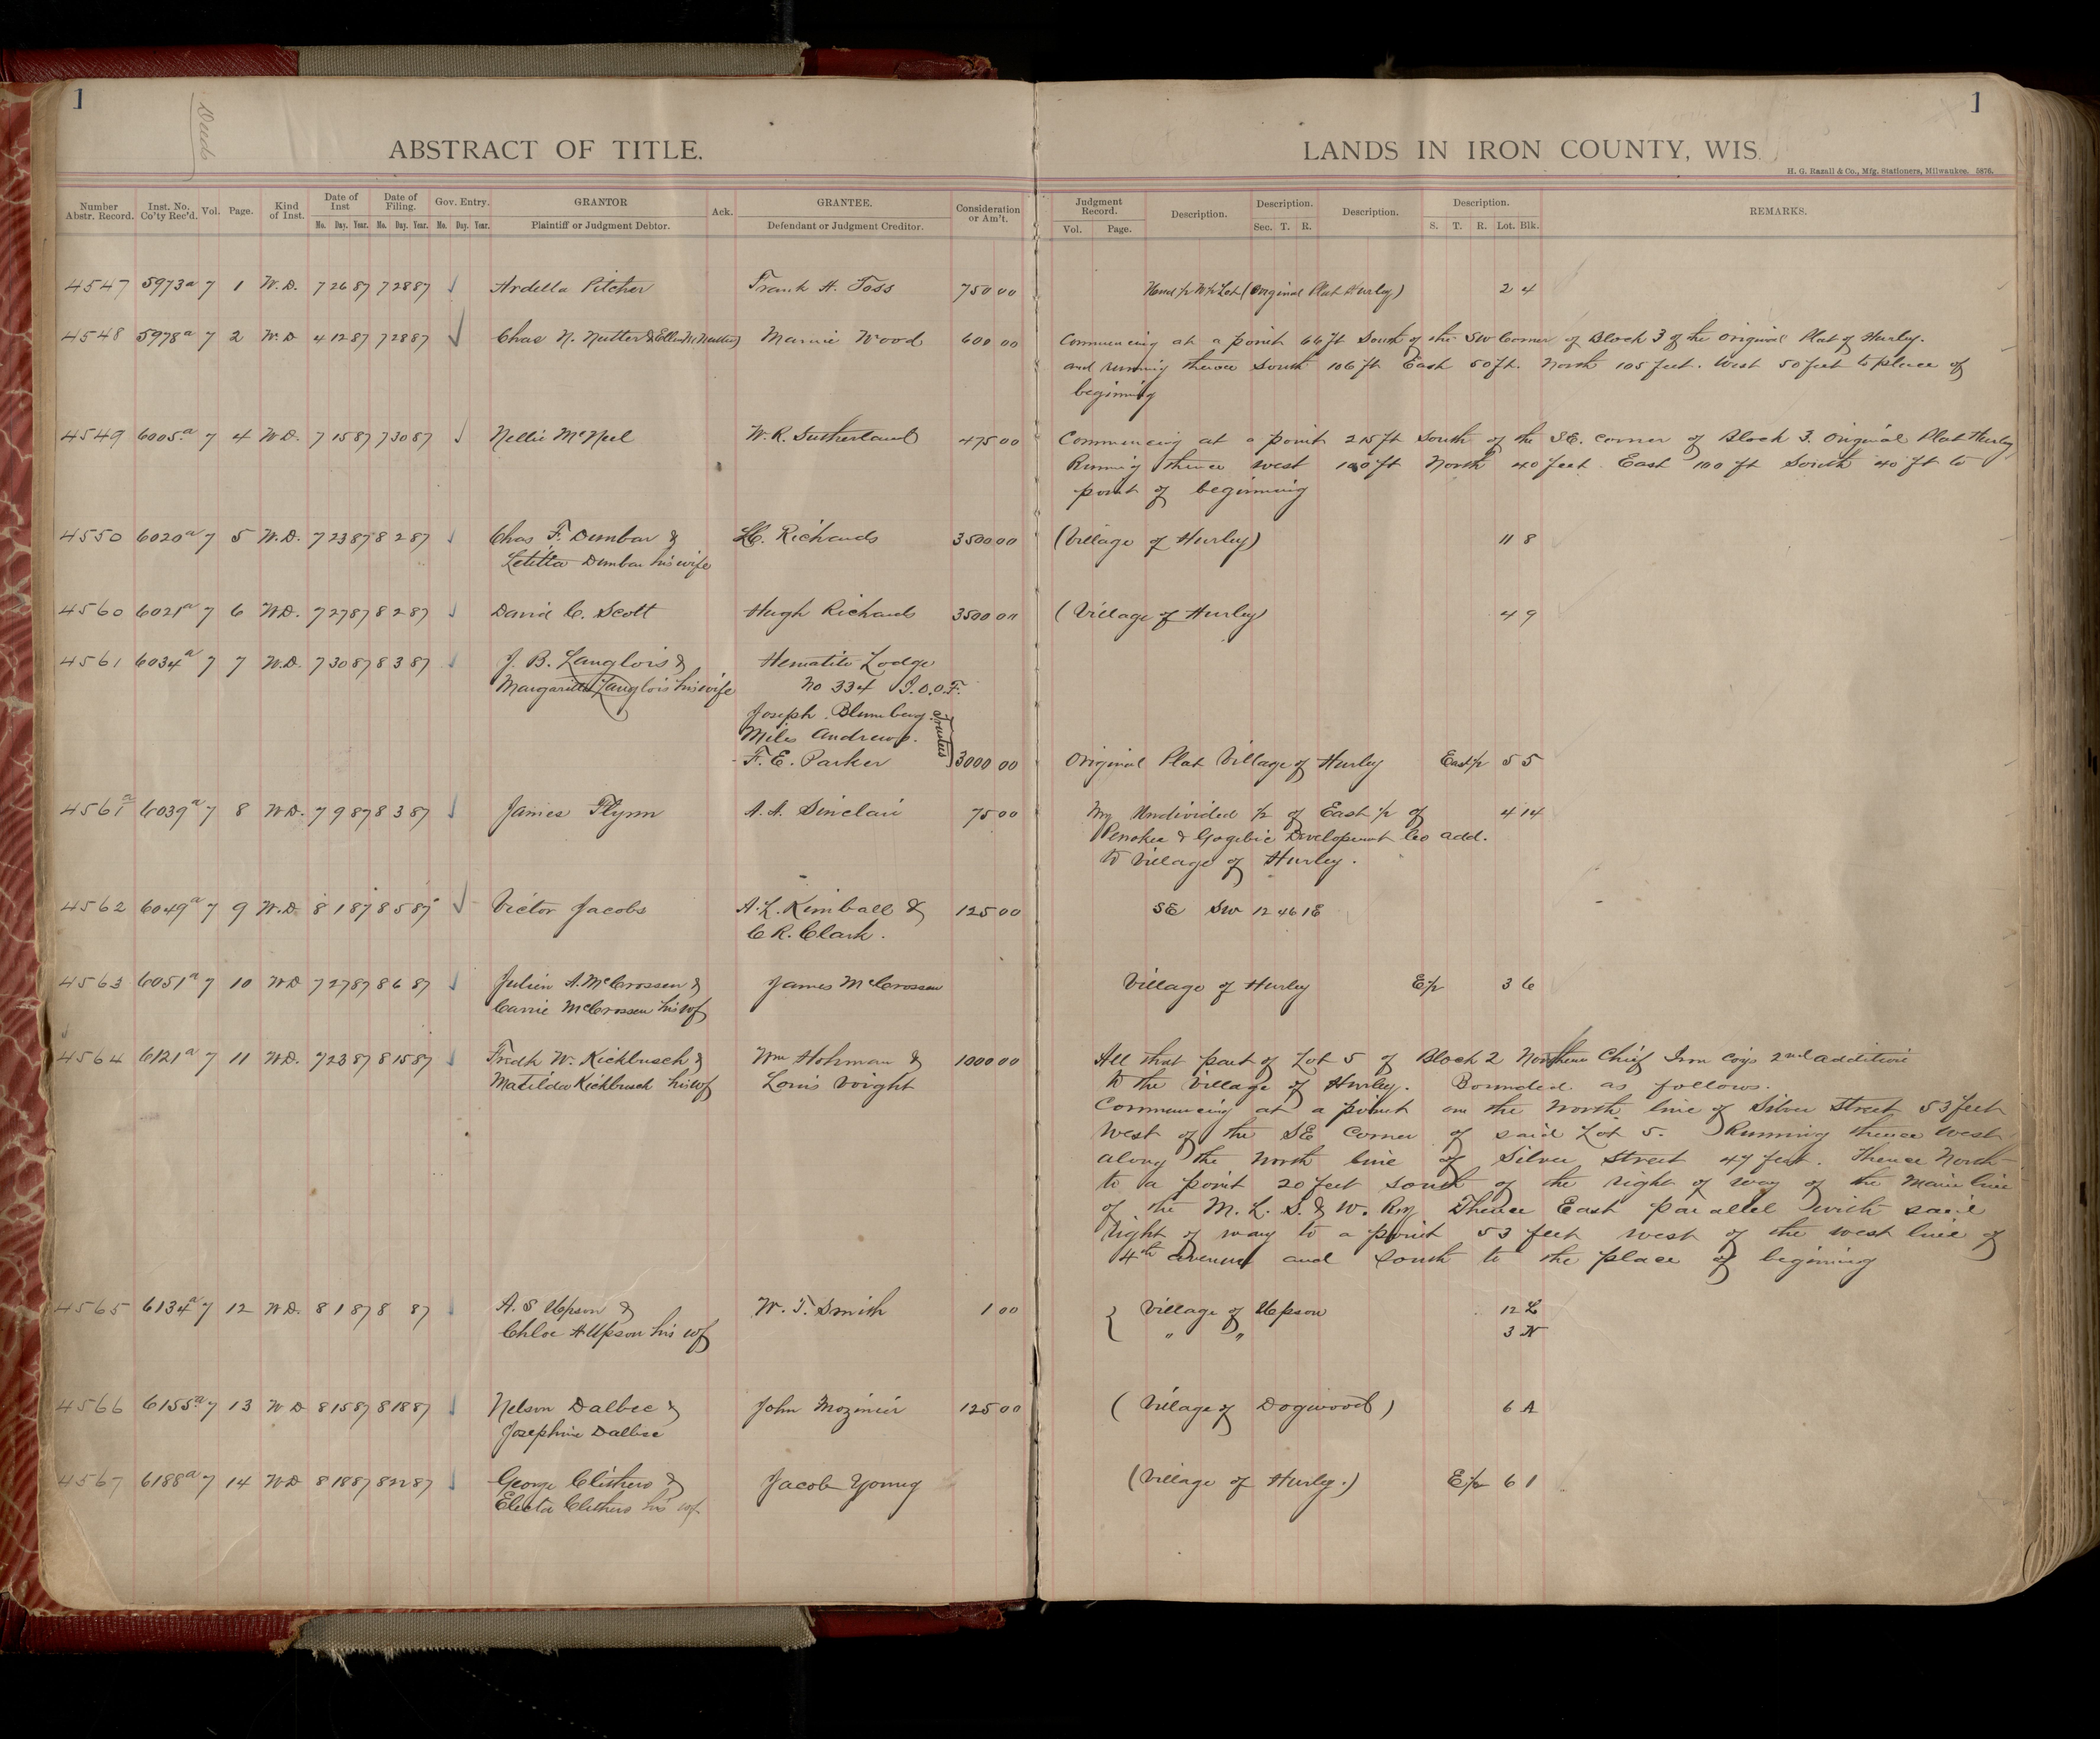 1
Deeds
1
ABSTRACT OF TITLE.
LANDS IN IRON COUNTY, WIS.
H. G. Razall & Co., Mfg. Stationers, Milwaukee. 5876.
Number Abstr. Record. Inst. No. Co'ty Rec'd. Vol. Page. Kind of Inst. Date of Inst Mo. Day. Year. Date of Filing. Mo. Day. Year. Gov. Entry. Mo. Day. Year. GRANTOR Plaintiff or Judgment Debtor. Ack. GRANTEE. Defendant or Judgment Creditor. Consideration or Am't. Judgment Record. Vol. Page. Description. Description. Sec. T. R. Description. Description. S. T. R. Lot. Blk. REMARKS.
4547 5973a 7 1 W.D. 7 26 87 7 28 87 ✓ Ardella Pitcher Frank H. Foss 750 00 (Original Plat Hurley) 2 4
4548 5978a 7 2 W.D 4 12 87 7 28 87 ✓ Chas N. Nutter & Ellen M. Nutter Mamie Wood 600 00 Commencing at a point 66 ft South of the SW Corner of Block 3 of the Original Plat of Hurley.
and running thence South 106 ft East 50 ft. North 105 feet. West 50 feet to place of
beginning
4549 6005a 7 4 W.D. 7 15 87 7 30 87 ✓ Nellie McNeil W. R. Sutherland 475 00 Commencing at a point 215 ft South of the SE. corner of Block 3. Original Plat Hurley
Running thence west 100 ft North 40 feet. East 100 ft South 40 ft to
point of beginning
4550 6020a 7 5 W.D. 7 23 87 8 2 87 ✓ Chas F. Dunbar & Richards 3500 00 (Village of Hurley) 11 8
Letitia Dunbar his wife
4560 6021a 7 6 W.D. 7 27 87 8 2 87 ✓ David C. Scott Hugh Richards 3500 00 (Village of Hurley) 4 9
4561 6034a 7 7 W.D. 7 30 87 8 3 87 ✓ J. B. Langlois & Hematite Lodge
Langlois his wife No 334 I.O.O.F.
Joseph Blumberg
Miles Andrews.
F. E. Parker } Trustees 3000 00 Original Plat Village of Hurley East ½ 5 5
4561a 6039a 7 8 W.D. 7 9 87 8 3 87 ✓ James Flynn A. A. Sinclair 75 00 My Undivided ½ of East ½ of 4 14
Penokee & Gogebic Development Co add.
to Village of Hurley.
4562 6049a 7 9 W.D 8 1 87 8 5 87 ✓ Victor Jacobs A. L. Kimball & 125 00 SE SW 12 46 1E
C R. Clark.
4563 6051a 7 10 WD 7 27 87 8 6 87 ✓ Julien A. McCrossen & James McCrossen Village of Hurley E ½ 3 6
Carrie McCrossen his wf
4564 6121a 7 11 W.D. 7 23 87 8 15 87 ✓ Fredk W. Kickbusch & Wm Hohman & 1000 00 All that part of Lot 5 of Block 2 Northern Chief Iron Coys 2nd addition
Matilda Kickbusch his wf Louis Voight to the Village of Hurley. Bounded as follows.
Commencing at a point on the North line of Silver Street 53 feet
West of the SE Corner of said Lot 5. Running thence West
along the North line of Silver Street 47 feet. Thence North
to a point 20 feet south of the right of way of the Main line
of the M. L. S. & W. Ry Thence East parallel with said
right of way to a point 53 feet west of the west line of
4th avenue and South to the place of beginning
4565 6134a 7 12 W.D. 8 1 87 8 87 A. S Upson & W. T. Smith 1 00 { Village of Upson 12 L
Chloe A Upson his wf " " 3 N
4566 6155a 7 13 W D 8 15 87 8 18 87 ✓ Nelson Dalbec & John 125 00 (Village of Dogwood) 6 A
Josephine Dalbec
4567 6188a 7 14 W D 8 18 87 8 22 87 ✓ George Clithero & Jacob Young (Village of Hurley.) E ½ 6 1
Electa Clithero his wf